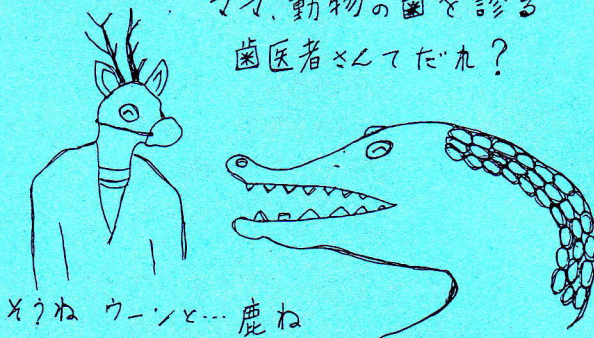 ママ、動物の歯を診る
歯医者さんてだれ?
そうね ウーンと…鹿ね